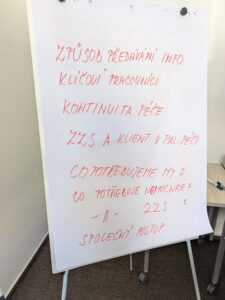 ZPŮSOB PŘEDÁVÁNÍ INFO
KLÍČOVÍ PRACOVNÍCI
KONTINUITA PÉČE
ZZS A KLIENT V PAL. PÉČI
CO POTŘEBUJEME MY ?
CO POTŘEBUJE NEMOCNICE ?
-||- ZZS ?
SPOLEČNÝ POSTUP